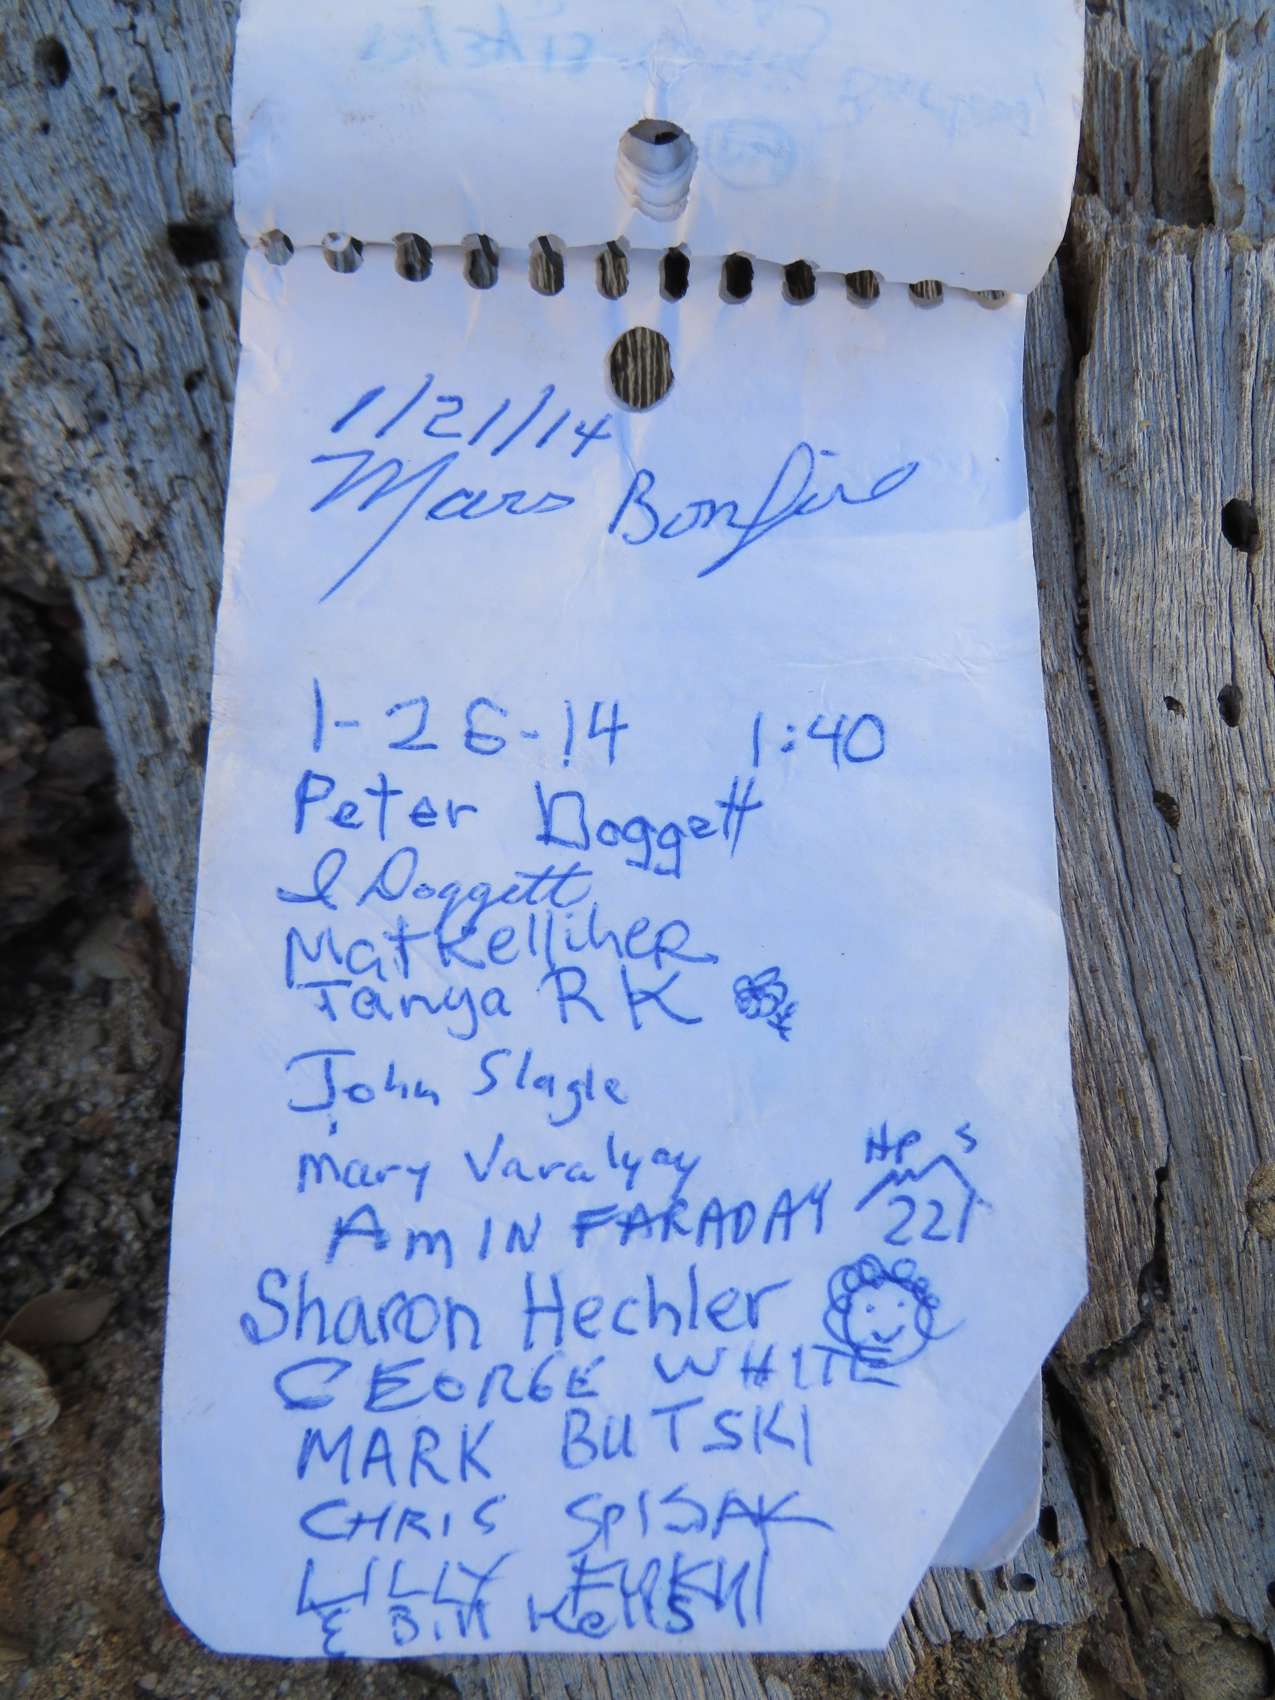 1/21/14
Mars Bonfire
1-26-14 1:40
Peter Doggett
I Doggett
Mat Kelliher
Tanya R K
John Slagle
Mary Varalyay
HPS
AMIN FARADAY 221
Sharon Hechler
GEORGE WHITE
MARK BUTSKI
CHRIS SPISAK
LILLY
& Bill Kells